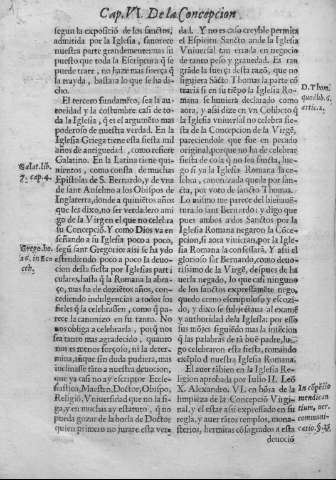 Cap. VI. De la Concepcion
segun la exposiciõ de los sanctos,
admitida por la Iglesia, fauorece
nuestra parte grandemente: mas si
puesto que toda la Escriptura q̃ se
puede traer, no haze mas fuerça q̃
la trayda, bastara lo que se ha di-
cho.
El tercero fundamẽto, sea la au-
toridad y la costumbre casi de to-
da la Iglesia, q̃ es el argumẽto mas
poderoso de nuestra verdad. En la
Iglesia Griega tiene esta fiesta mil
años de antiguedad, como refiere
Galatino. En la Latina tiene quin-
ientos, como consta de muchas
Epistolas de S. Bernardo, y de vna
de sant Anselmo a los Obispos de
Inglaterra, donde a quiniẽtos años
que les dixo, no ser verdadero ami
go de la Virgen el que no celebra
su Concepciõ. Y como Dios va en
señando a su Iglesia poco a poco,
segũ sant Gregorio: assi se ha ydo
estendiendo poco a poco la deuo-
cion desta fiesta por Iglesias parti
culares, hasta q̃ la Romana la abra-
ço, mas ha de dozientos años, con-
cediendo indulgencias a todos los
fieles q̃ la celebrassen, como q̃ pa-
rece la canonizo en su tanto. No
nos obliga a celebrarla, porq̃ nos
sea tanto mas agradecido, quanto
nos es menos forçoso, ni la deter-
mina, aũque sin duda pudiera, mas
inclinasse tãto a nuestra deuocion,
que ya casi no ay excelẽte Eccle-
siastico, Maestro, Doctor, Obispo,
Religiõ, Vniuersidad que no la si-
ga, y en muchas ay estatuto, q̃ no
pueda gozar de la borla de Doctor
quien primero no jurare esta ver-
Galat. lib.
7. cap. 4.
Grego. ho.
in Eze
ch.
dad. Y no es caso creyble permita
el Espiritu Sãcto ande la Iglesia
Vniuersal tan errada en negocio
de tanto peso y grauedad. Es ran
grãde la fuerça desta razõ, que no
siguiera Sãcto Thomas la parte cõ
traria si en su tiẽpo la Iglesia Ro-
mana se huuiera declarado como
aora, y assi dize en vn Colibeto q̃
la Iglesia vniuersal no celebra fie-
sta de la Concepcion de la Virgẽ,
pareciendole que fuera inconue-
niente que en la Iglesia se celebre
fiesta de cosa q̃ no sea sancta, lue-
go si ya la Iglesia Romana la ce-
lebra, canonizada queda por san-
cta, por voto de sancto Thomas.
Lo mismo me parece del bienauen-
turado sant Bernardo: y digo que
pues ambos a dos Sanctos por la
Iglesia Romana negaron la Con-
cepcion, si aora viuieran por la Igle
sia Romana la confessaran. Y assi el
glorioso sant Bernardo, como deuo-
tissimo de la Virgẽ, despues de ha
uerla negado, lo que casi ninguno
de los sanctos expressamẽte nego,
quedo como escrupuloso y escozi-
do, y dixo se subjectaua al examẽ
y authoridad dela Iglesia: por esso
sus mõjes siguiẽdo mas la intẽcion
q̃ las palabras de tã buẽ padre, lue-
go celebraron esta fiesta, tomando
exẽplo d̃ nuestra Iglesia Romana.
El auer tãbien en la Iglesia Re-
ligion aprobada por Iulio II. Leõ
X. Alexandro. VI. en hõra de la
limpieza de la Concepciõ Virgi-
nal, y el estar assi expressado en su
regla, y auer tãtos templos, mona-
sterios, hermitas cõsagrados a esta
deuociõ
D. Thom.
quolib. 6.
artic. 2.
In cõpẽdio
mendican
tium, ver.
communi
catio. §.